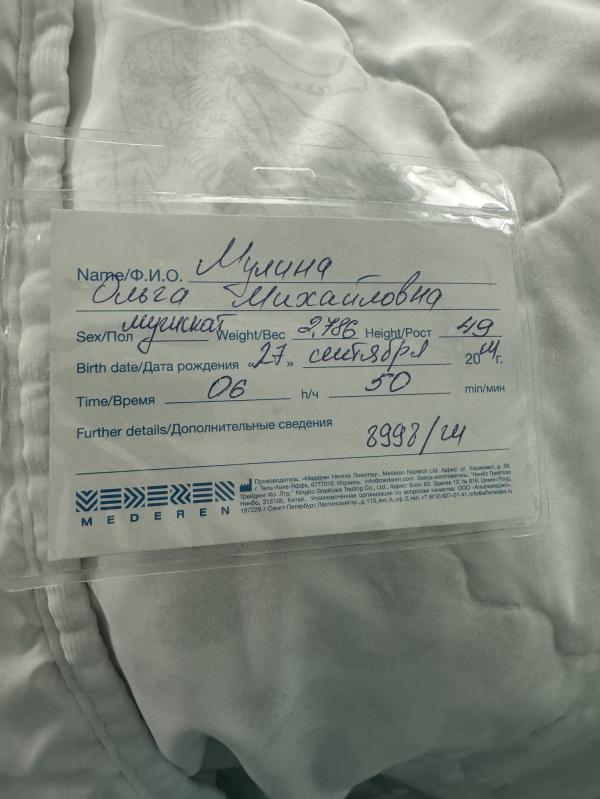 Name/Ф.И.О. Мулина
Ольга Михайловна
Sex/Пол Weight/Вес 2,786 Height/Рост 49
Birth date/Дата рождения «27» сентября 20 г.
Time/Время 06 h/ч 50 min/мин
Further details/Дополнительные сведения
MEDEREN
Производитель: «Медерен Неотех Лимитед», Mederen Neotech Ltd. Адрес: ул.
г. Тель-Авив-Яффа, 6777016, Израиль, info@mederen.com. Завод-изготовитель: "Нинбо Грейткэа
Трейдинг Ко. Лтд." Ningbo Greatcare Trading Co., Ltd., Адрес: Блок 93, Здание 12, № 818, Цимин Роуд,
Нинбо, 315105, Китай. Уполномоченная организация по вопросам качества: ООО «Альфамедэкс»,
197229, г. Санкт-Петербург, Лахтинский пр., д. 113, лит. А, оф. 2, тел. +7 (812) 627-21-41, info@alfamedex.ru